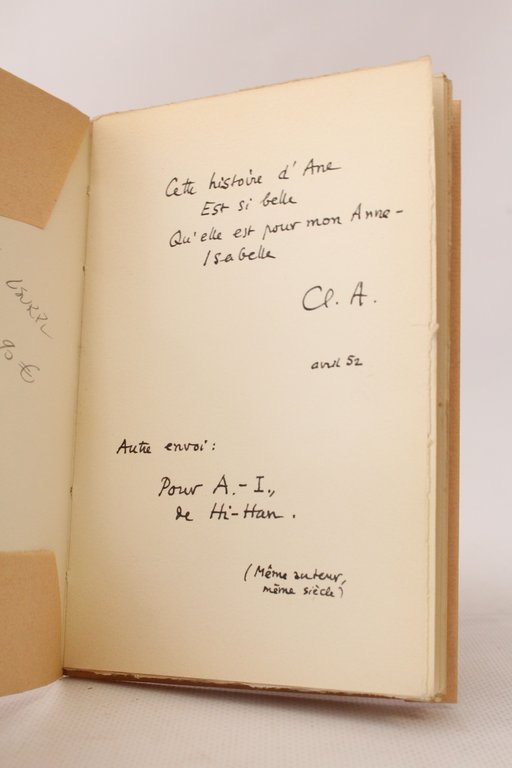 Cette histoire d'Ane
Est si belle
Qu'elle est pour mon Anne-
Isabelle
Cl. A.
avril 52
Autre envoi :
Pour A.-I.,
de Hi-Han.
(Même auteur,
même siècle)
90 €